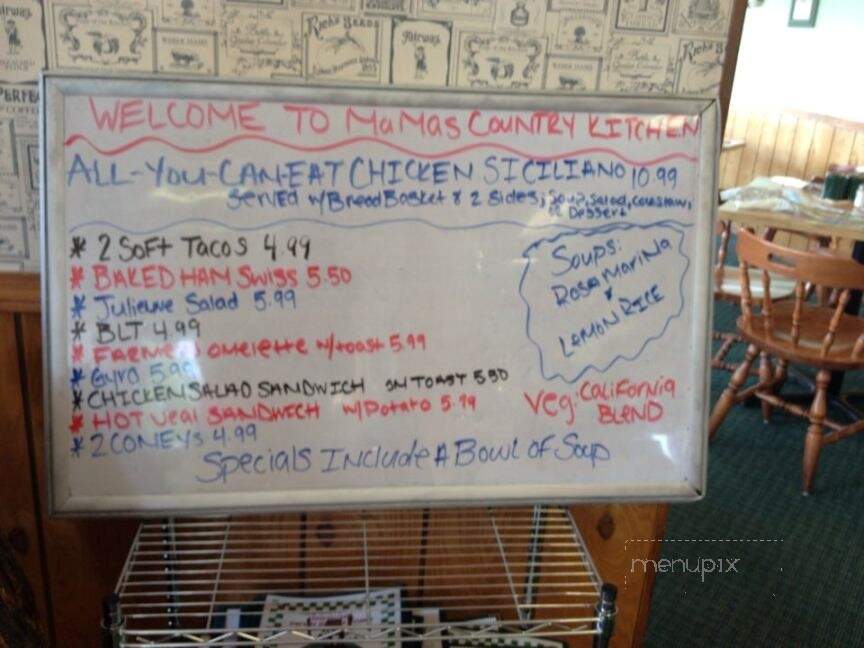 WELCOME TO MaMas COUNTRY KITCHEN
ALL-YOU-CAN-EAT CHICKEN SICILIANO 10.99
Served w/Bread Basket & 2 Sides; Soup, Salad, Coleslaw,
or Dessert
* 2 SOFT TACOS 4.99
* BAKED HAM Swiss 5.50
* Julienne Salad 5.99
* BLT 4.99
* FARMERS omelette w/toast 5.99
* Gyro 5.99
* CHICKEN SALAD SANDWICH ON TOAST 5.50
* HOT Veal SANDWICH w/Potato 5.99
* 2 CONEYS 4.99
Specials Include A Bowl of Soup
Soups:
Rosamarina
&
LEMON RICE
Veg: California
BLEND
menupix
Rich's Seeds
Fairway
PERFE